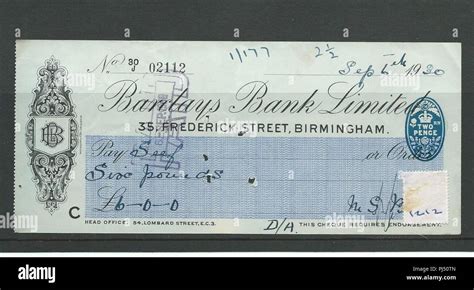 No 30 02112
1/177 2½
Sept 1930
Barclays Bank Limited
35, FREDERICK STREET, BIRMINGHAM.
TWO PENCE
Pay or Order
£6-0-0
C
HEAD OFFICE: 54, LOMBARD STREET, E.C.3.
D/A
THIS CHEQUE REQUIRES ENDORSEMENT.
alamy
Image ID: PJ50TN
www.alamy.com